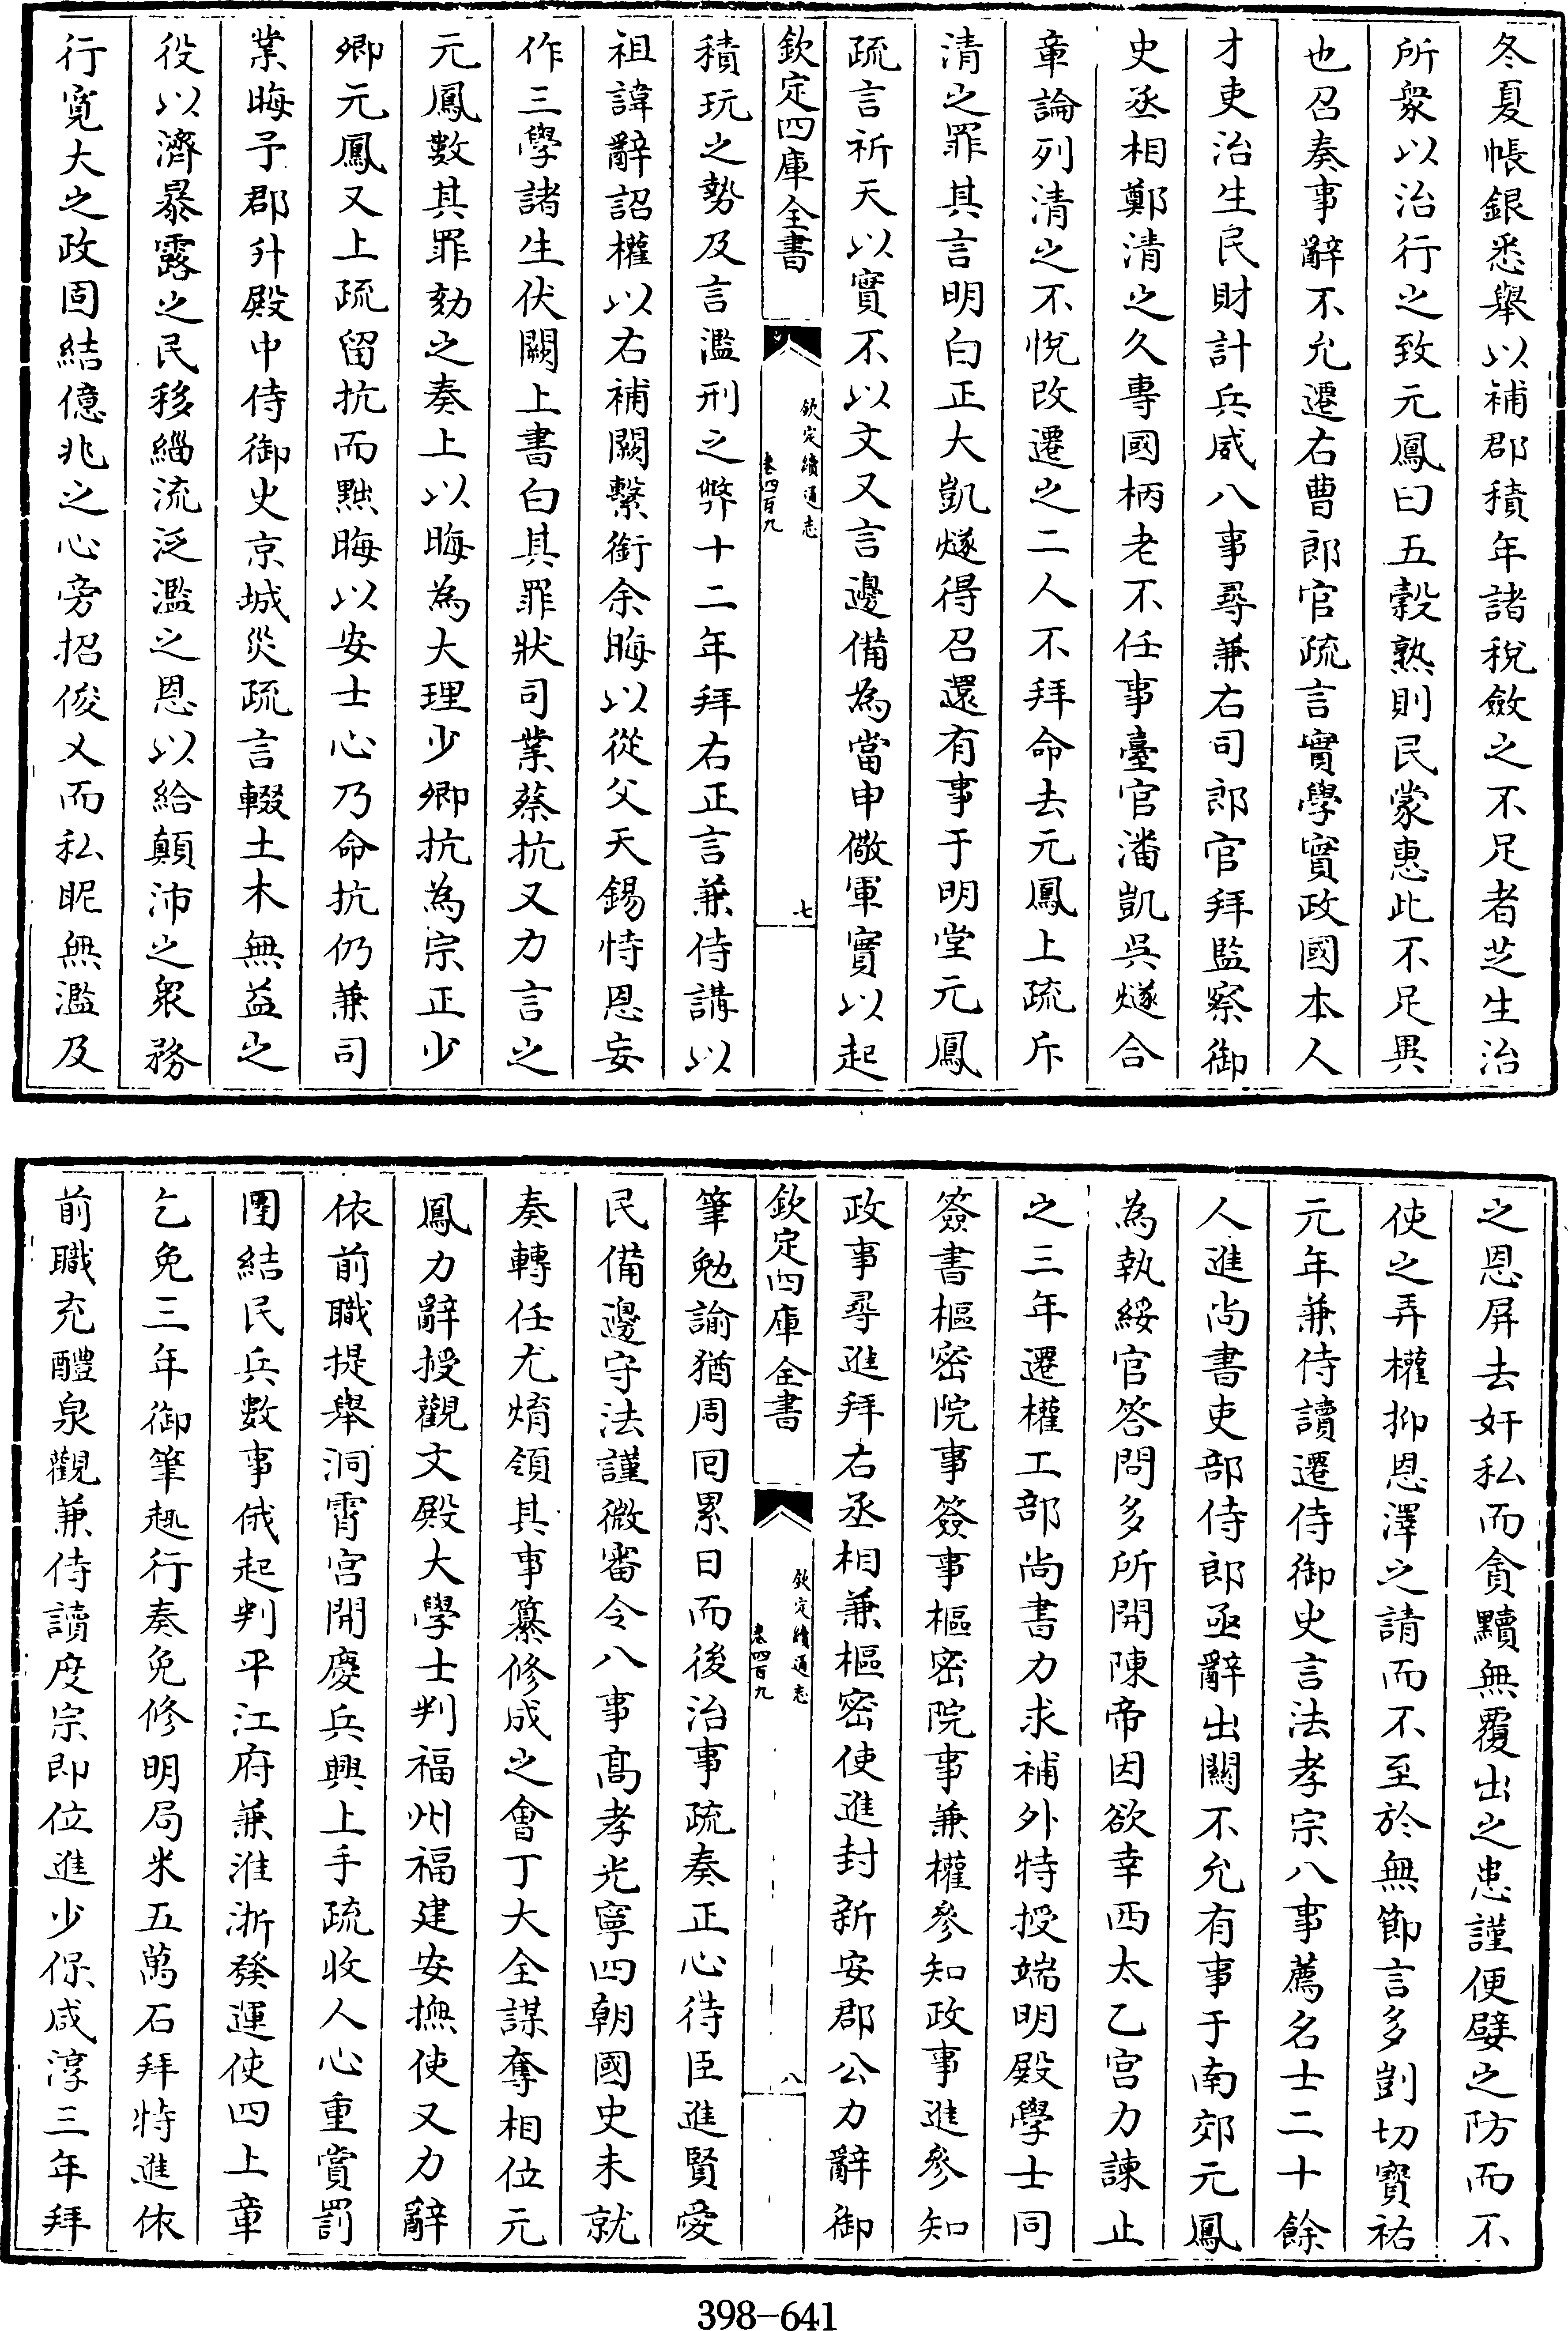 冬夏帳銀悉舉以補郡積年諸稅斂之不足者芝生治
所衆以治行之致元鳳曰五穀熟則民蒙惠此不足異
也召奏事辭不允遷右曹郎官疏言實學實政國本人
才吏治生民財計兵威八事尋兼右司郎官拜監察御
史丞相鄭清之久專國柄老不任事臺官潘凱吳燧合
章論列清之不悅改遷之二人不拜命去元鳳上疏斥
清之罪其言明白正大凱燧得召還有事于明堂元鳳
疏言祈天以實不以文又言邊備為當申儆軍實以起
欽定四庫全書
欽定續通志
卷四百九
七
積玩之勢及言濫刑之弊十二年拜右正言兼侍講以
祖諱辭詔權以右補闕繫銜余晦以從父天錫恃恩妄
作三學諸生伏闕上書白其罪狀司業蔡抗又力言之
元鳳數其罪劾之奏上以晦為大理少卿抗為宗正少
卿元鳳又上疏留抗而黜晦以安士心乃命抗仍兼司
業晦予郡升殿中侍御史京城災疏言輟土木無益之
役以濟暴露之民移緇流泛濫之恩以給顛沛之衆務
行寬大之政固結億兆之心旁招俊乂而私昵無濫及
之恩屏去奸私而貪黷無覆出之患謹便嬖之防而不
使之弄權抑恩澤之請而不至於無節言多剴切寳祐
元年兼侍讀遷侍御史言法孝宗八事薦名士二十餘
人進尚書吏部侍郎亟辭出關不允有事于南郊元鳳
為執綏官答問多所開陳帝因欲幸西太乙宮力諫止
之三年遷權工部尚書力求補外特授端明殿學士同
簽書樞密院事簽事樞密院事兼權參知政事進參知
政事尋進拜右丞相兼樞密使進封新安郡公力辭御
欽定四庫全書
欽定續通志
卷四百九
八
筆勉諭猶周囘累日而後治事疏奏正心待臣進賢愛
民備邊守法謹微審令八事高孝光寧四朝國史未就
奏轉任尤焴領其事纂修成之會丁大全謀奪相位元
鳳力辭授觀文殿大學士判福州福建安撫使又力辭
依前職提舉洞霄宮開慶兵興上手疏收人心重賞罰
團結民兵數事俄起判平江府兼淮浙發運使四上章
乞免三年御筆趣行奏免修明局米五萬石拜特進依
前職充醴泉觀兼侍讀度宗即位進少保咸淳三年拜
398-641